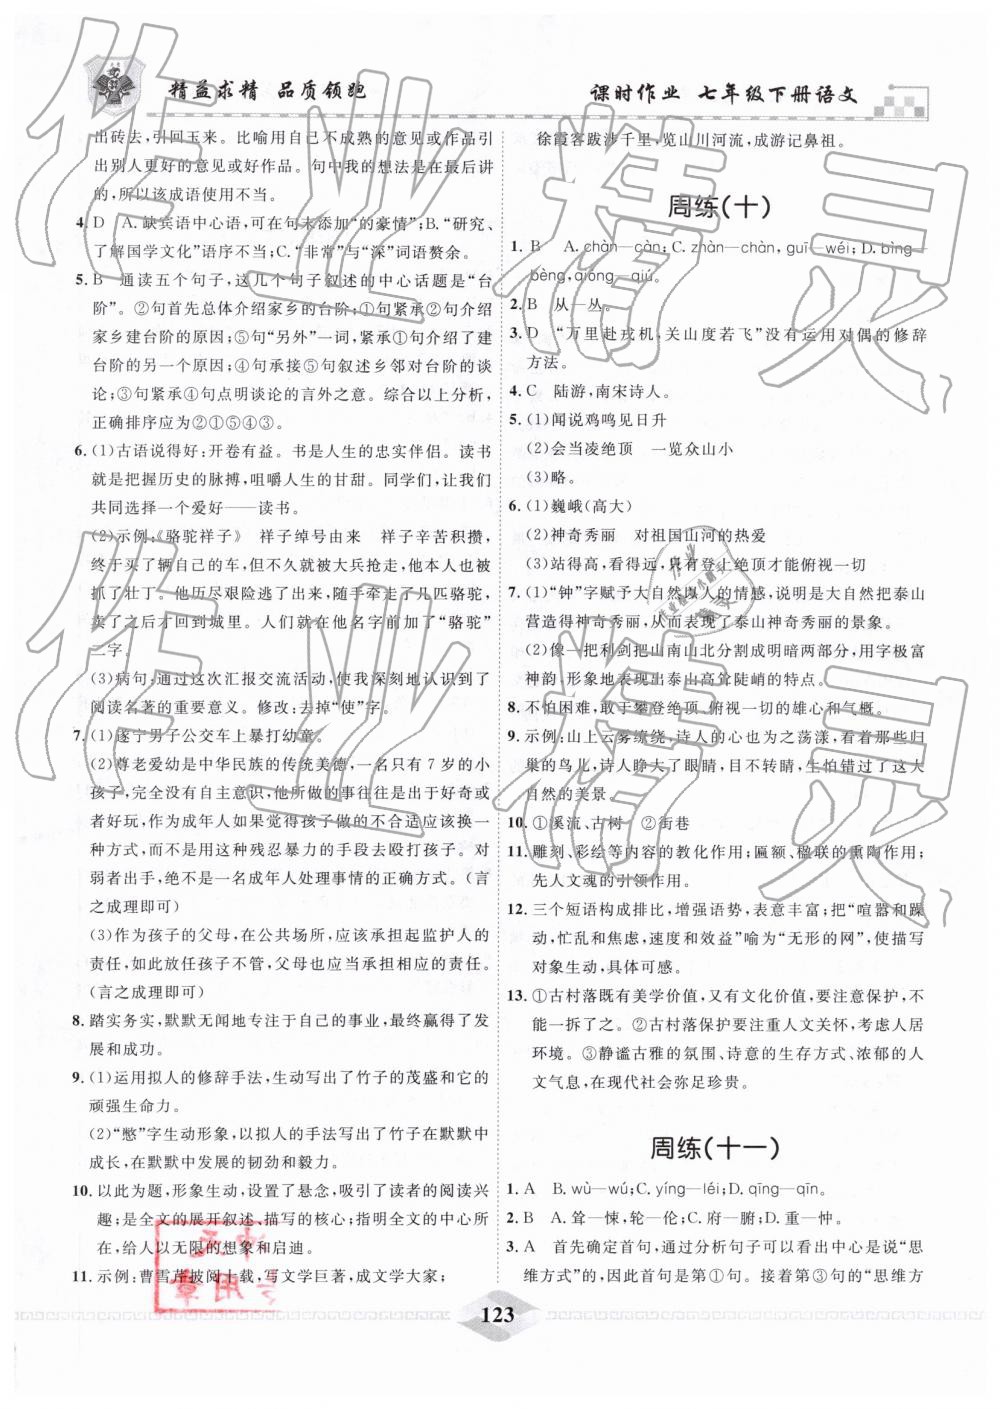 精益求精 品质领跑
课时作业 七年级下册语文
出砖去,引回玉来。比喻用自己不成熟的意见或作品引
出别人更好的意见或好作品。句中我的想法是在最后讲
的,所以该成语使用不当。
4. D A.缺宾语中心语,可在句末添加“的豪情”;B.“研究、
了解国学文化”语序不当;C.“非常”与“深”词语赘余。
5. B 通读五个句子,这几个句子叙述的中心话题是“台
阶”。②句首先总体介绍家乡的台阶;①句紧承②句介绍
家乡建台阶的原因;⑤句“另外”一词,紧承①句介绍了建
台阶的另一个原因;④句承接⑤句叙述乡邻对台阶的谈
论;③句紧承④句点明谈论的言外之意。综合以上分析,
正确排序应为②①⑤④③。
6. (1)古语说得好:开卷有益。书是人生的忠实伴侣。读书
就是把握历史的脉搏,咀嚼人生的甘甜。同学们,让我们
共同选择一个爱好——读书。
(2)示例:《骆驼祥子》 祥子绰号由来 祥子辛苦积攒,
终于买了一辆自己的车,但不久就被大兵抢走,他也被
抓了壮丁。他历尽艰险逃了出来,随手牵走了几匹骆驼,
卖了之后才回到城里。人们就在他名字前加了“骆驼”
二字。
(3)病句:通过这次汇报交流活动,使我深刻地认识到了
阅读名著的重要意义。修改:去掉“使”字。
7. (1)遂宁男子公交车上暴打幼童。
(2)尊老爱幼是中华民族的传统美德,一名只有 7 岁的小
孩子,完全没有自主意识,他所做的事往往是出于好奇或
好玩,作为成年人如果觉得孩子做的不合适应该换一
种方式,而不是用这种残忍暴力的手段去殴打孩子。对
弱者出手,绝不是一名成年人处理事情的正确方式。(言
之成理即可)
(3)作为孩子的父母,在公共场所,应该承担起监护人的
责任,如此放任孩子不管,父母也应当承担相应的责任。
(言之成理即可)
8. 踏实务实,默默无闻地专注于自己的事业,最终赢得了发
展和成功。
9. (1)运用拟人的修辞手法,生动写出了竹子的茂盛和它的
顽强生命力。
(2)“憋”字生动形象,以拟人的手法写出了竹子在默默中
成长,在默默中发展的韧劲和毅力。
10. 以此为题,形象生动,设置了悬念,吸引了读者的阅读兴
趣;是全文的展开叙述、描写的核心;指明全文的中心所
在,给人以无限的想象和启迪。
11. 示例:曹雪芹披阅十载,写文学巨著,成文学大家;
徐霞客跋涉千里,览山川河流,成游记鼻祖。
周练(十)
1. B A. chàn—càn; C. zhàn—chàn, guī—wéi; D. bìng—
bèng, qióng—qiú。
2. B 从—丛。
3. D “万里赴戎机,关山度若飞”没有运用对偶的修辞
方法。
4. C 陆游,南宋诗人。
5. (1)闻说鸡鸣见日升
(2)会当凌绝顶 一览众山小
(3)略。
6. (1)巍峨(高大)
(2)神奇秀丽 对祖国山河的热爱
(3)站得高,看得远,只有登上绝顶才能俯视一切
7. (1)“钟”字赋予大自然以人的情感,说明是大自然把泰山
营造得神奇秀丽,从而表现了泰山神奇秀丽的景象。
(2)像一把利剑把山南山北分割成明暗两部分,用字极富
神韵,形象地表现出泰山高耸陡峭的特点。
8. 不怕困难,敢于攀登绝顶、俯视一切的雄心和气概。
9. 示例:山上云雾缭绕,诗人的心也为之荡漾,看那些归
巢的鸟儿,诗人睁大了眼睛,目不转睛,生怕错过了这大
自然的美景。
10. ①溪流、古树 ②街巷
11. 雕刻、彩绘等内容的教化作用;匾额、楹联的熏陶作用;
先人文魂的引领作用。
12. 三个短语构成排比,增强语势,表意丰富;把“喧嚣和躁
动,忙乱和焦虑,速度和效益”喻为“无形的网”,使描写
对象生动,具体可感。
13. ①古村落既有美学价值,又有文化价值,要注意保护,不
能一拆了之。②古村落保护要注重人文关怀,考虑人居
环境。③静谧古雅的氛围、诗意的生存方式、浓郁的人
文气息,在现代社会弥足珍贵。
周练(十一)
1. A B. wù—wú; C. yíng—léi; D. qīng—qīn。
2. B A.耸—悚,轮—伦;C.府—腑;D.重—忡。
3. A 首先确定首句,通过分析句子可以看出中心是说“思
维方式”的,因此首句是第①句。接着第③句的“思维方
123
作业精灵
作业精灵